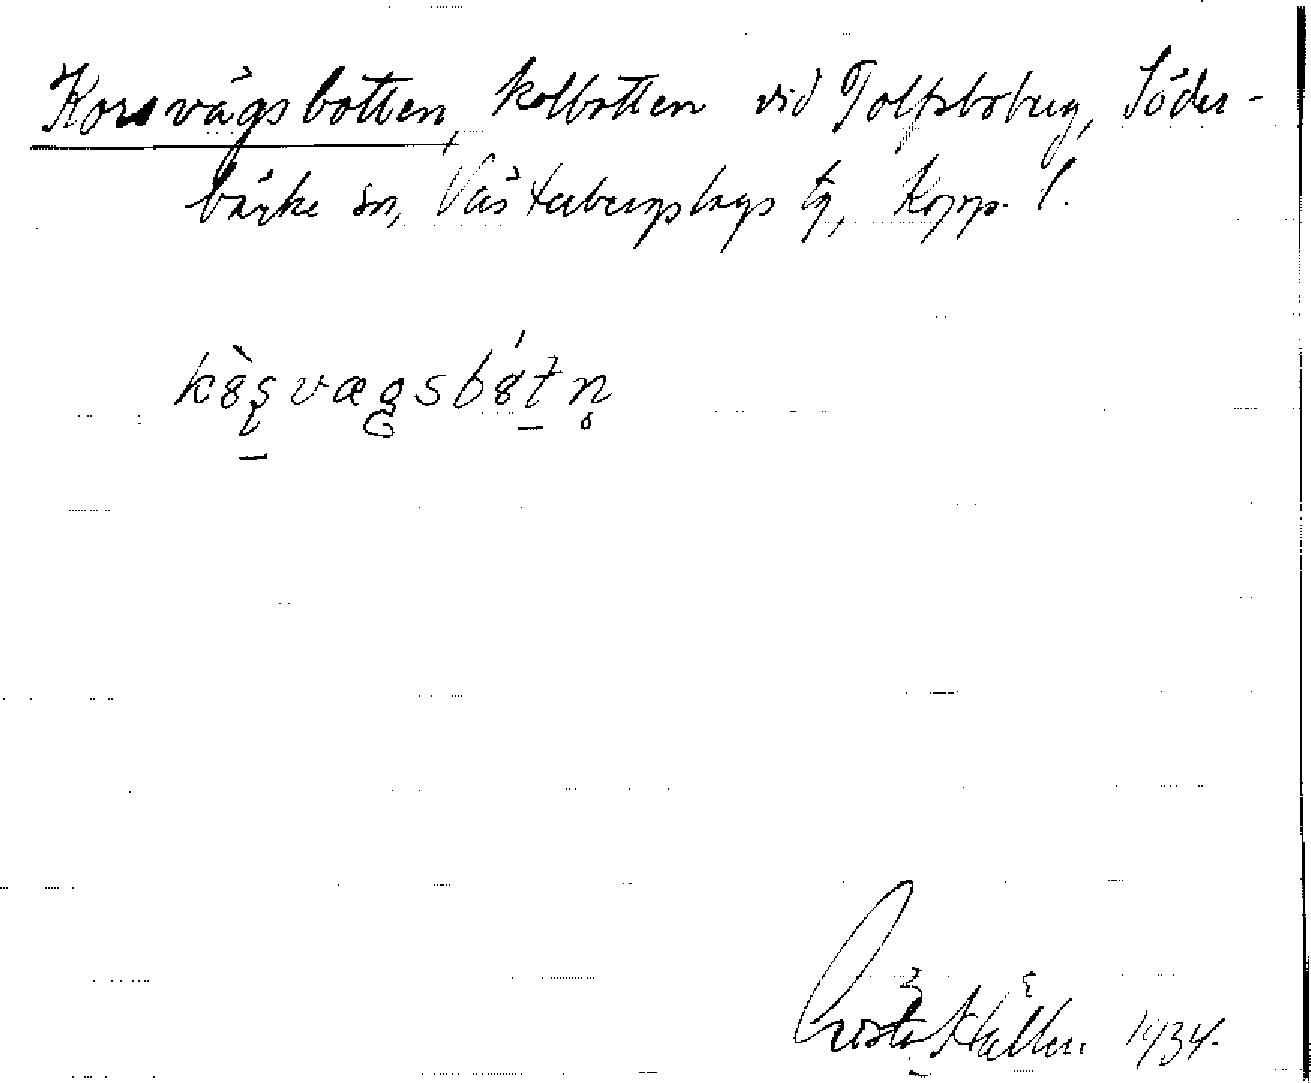 Korsvägsbotten, kolbotten vid Tolfsbobyg, Söder-
bärke sn, Västerbergslags tg, Kopp. l.
kȣ̀ʂvægsbȣ́tn̥
Gösta 1934.